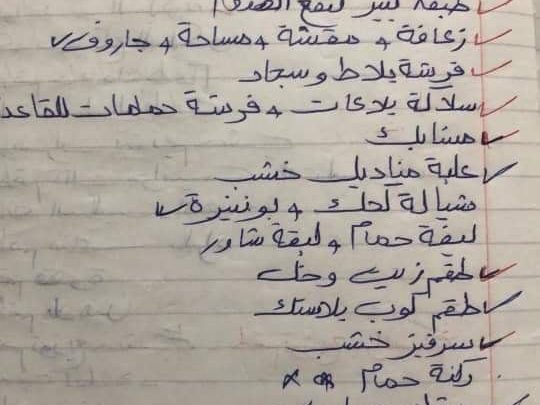 طبق كبير لنقع الهدوم
زعافة + مقشة + مساحة + جاروف
فرشة بلاط وسجاد
سلاكة بلاعات + فرشة حمامات للقاعد
مشابك
علبة مناديل خشب
شيالة لحلك + بونبنيرة
ليفة حمام + ليفة شاور
طقم زيت وخل
طقم كوب بلاستك
سرفيز خشب
ركنة حمام